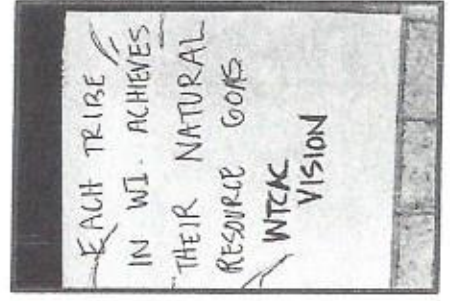 EACH TRIBE
IN WI. ACHIEVES
THEIR NATURAL
RESOURCE GOALS
WTCAC
VISION